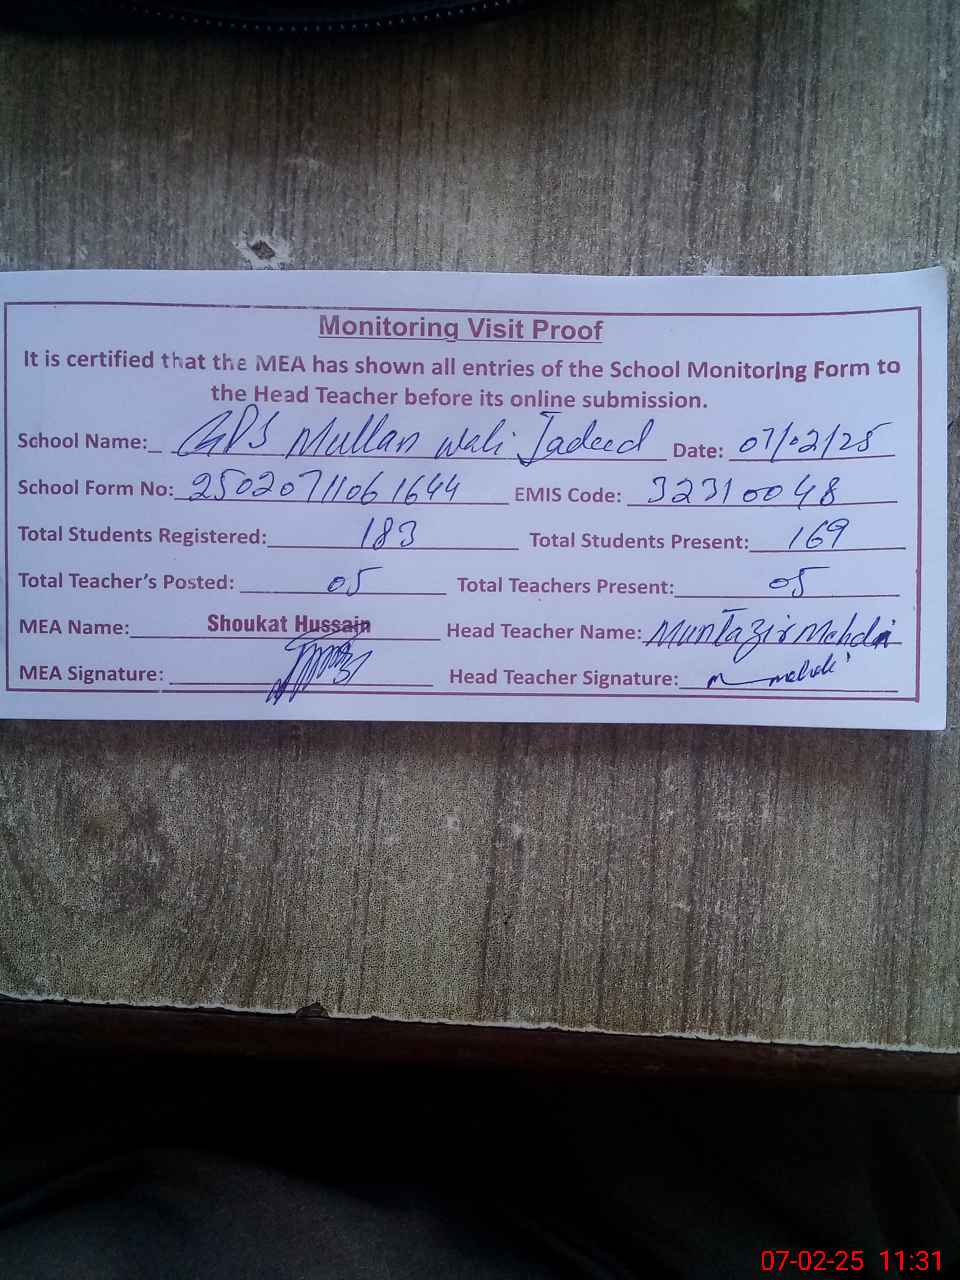 Monitoring Visit Proof
It is certified that the MEA has shown all entries of the School Monitoring Form to
the Head Teacher before its online submission.
School Name: GPS Mullan Wali Jadeed Date: 07/02/25
School Form No: 25020711061644 EMIS Code: 32310048
Total Students Registered: 183 Total Students Present: 169
Total Teacher's Posted: 05 Total Teachers Present: 05
MEA Name: Shoukat Hussain Head Teacher Name: Muntazir Mehdi
MEA Signature: Head Teacher Signature: m mehdi
07-02-25 11:31